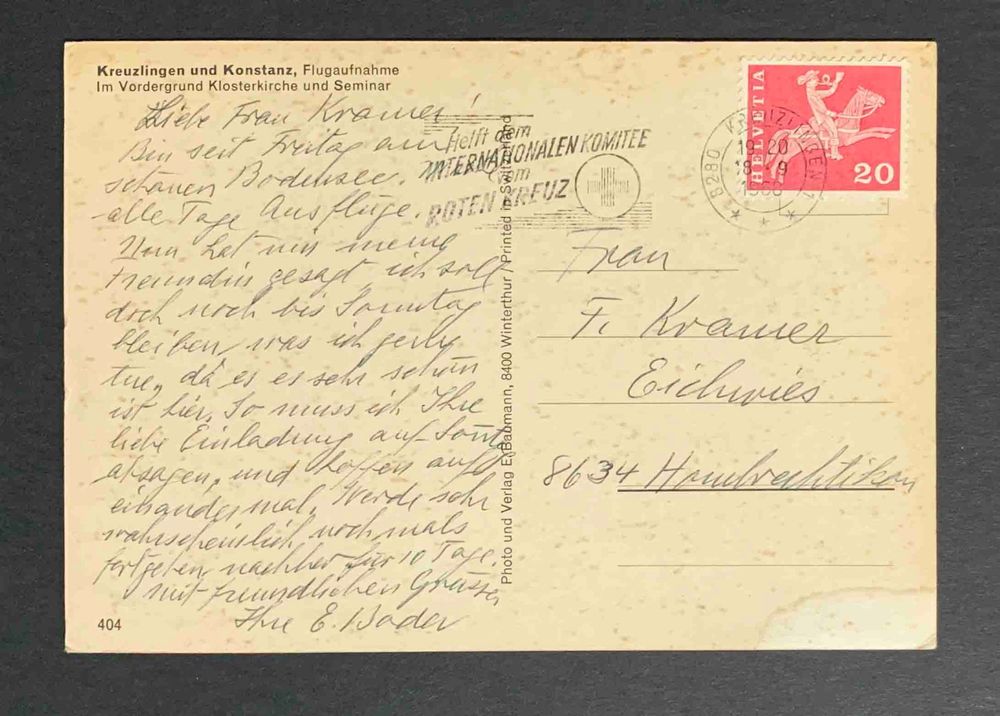 Kreuzlingen und Konstanz, Flugaufnahme
Im Vordergrund Klosterkirche und Seminar
Liebe Frau Kramer!
Bin seit Freitag am
schönen Bodensee.
alle Tage Ausflüge.
Nun hat mir meine
Freundin gesagt ich soll
doch noch bis Sonntag
bleiben, was ich gerne
tue, da es es sehr schön
ist hier. So muss ich Ihre
liebe Einladung auf Sonnt.
absagen, und hoffen auf
einandermal. Werde sehr
wahrscheinlich nochmals
fortgehen nachher für 10 Tage.
mit freundlichen Grüssen
Ihre E. Bader
404
Photo und Verlag E. Baumann, 8400 Winterthur / Printed in Switzerland
Helft dem
INTERNATIONALEN KOMITEE
vom
ROTEN KREUZ
8280 KREUZLINGEN 1
18 -9
HELVETIA
20
Frau
F. Kramer
Eichwies
8634 Hombrechtikon